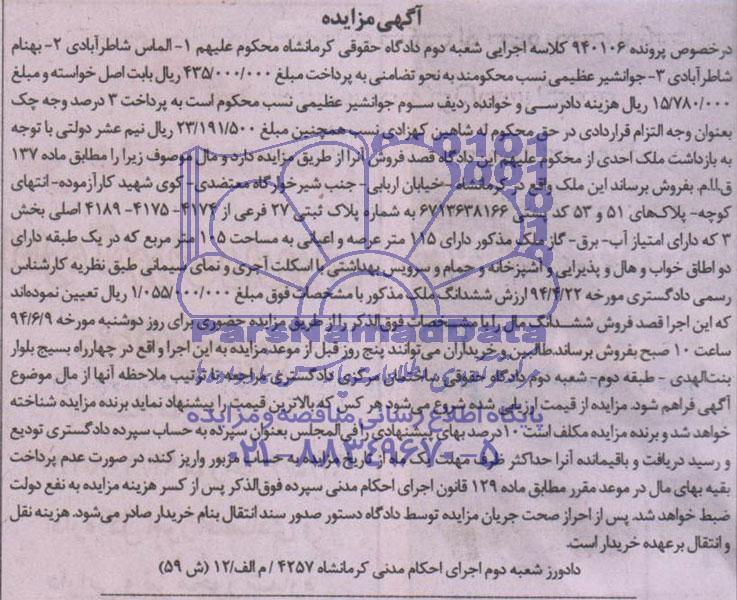 آگهی مزایده
درخصوص پرونده ۹۴۰۱۰۶ کلاسه اجرایی شعبه دوم دادگاه حقوقی کرمانشاه محکوم علیهم ۱- الماس شاطرآبادی ۲- بهنام
شاطرآبادی ۳- جوانشیر عظیمی نسب محکومند به نحو تضامنی به پرداخت مبلغ ۴۳۵/۰۰۰/۰۰۰ ریال بابت اصل خواسته و مبلغ
۱۵/۷۸۰/۰۰۰ ریال هزینه دادرسی و خوانده ردیف سوم جوانشیر عظیمی نسب محکوم است به پرداخت ۳ درصد وجه چک
بعنوان وجه التزام قراردادی در حق محکوم له شاهین کهزادی نسب همچنین مبلغ ۲۳/۱۹۱/۵۰۰ ریال نیم عشر دولتی با توجه
به بازداشت ملک احدی از محکوم علیهم این دادگاه قصد فروش آنرا از طریق مزایده دارد و مال موصوف زیرا را مطابق ماده ۱۳۷
ق.ا.ا.م. بفروش برساند این ملک واقع در کرمانشاه - خیابان اربابی- جنب شیرخوارگاه معتضدی- کوی شهید کارآزموده- انتهای
کوچه- پلاک‌های ۵۱ و ۵۳ کد پستی ۶۷۱۳۶۳۸۱۶۶ به شماره پلاک ثبتی ۲۷ فرعی از ۴۱۷۴- ۴۱۷۵- ۴۱۸۹ اصلی بخش
۳ که دارای امتیاز آب- برق- گاز ملک مذکور دارای ۱۱۵ متر عرصه و اعیانی به مساحت ۱۰۵ متر مربع که در یک طبقه دارای
دو اطاق خواب و هال و پذیرایی و آشپزخانه و حمام و سرویس بهداشتی با اسکلت آجری و نمای سیمانی طبق نظریه کارشناس
رسمی دادگستری مورخه ۹۴/۴/۲۲ ارزش ششدانگ ملک مذکور با مشخصات فوق مبلغ ۱/۰۵۵/۰۰۰/۰۰۰ ریال تعیین نموده‌اند
که این اجرا قصد فروش ششدانگ مال را با مشخصات فوق‌الذکر را از طریق مزایده حضوری برای روز دوشنبه مورخه ۹۴/۶/۹
ساعت ۱۰ صبح بفروش برساند.طالبین و خریداران می‌توانند پنج روز قبل از موعد مزایده به این اجرا واقع در چهارراه بسیج بلوار
بنت‌الهدی - طبقه دوم- شعبه دوم دادگاه حقوقی ساختمان مرکزی دادگستری مراجعه تا ترتیب ملاحظه آنها از مال موضوع
آگهی فراهم شود. مزایده از قیمت ارزیابی شده شروع می‌شود هر کس که بالاترین قیمت را پیشنهاد نماید برنده مزایده شناخته
خواهد شد و برنده مزایده مکلف است ۱۰درصد بهای پیشنهادی را فی‌المجلس بعنوان سپرده به حساب سپرده دادگستری تودیع
و رسید دریافت و باقیمانده آنرا حداکثر ظرف مهلت یک ماه از تاریخ مزایده به حساب مزبور واریز کند، در صورت عدم پرداخت
بقیه بهای مال در موعد مقرر مطابق ماده ۱۲۹ قانون اجرای احکام مدنی سپرده فوق‌الذکر پس از کسر هزینه مزایده به نفع دولت
ضبط خواهد شد. پس از احراز صحت جریان مزایده توسط دادگاه دستور صدور سند انتقال بنام خریدار صادر می‌شود. هزینه نقل
و انتقال برعهده خریدار است.
دادورز شعبه دوم اجرای احکام مدنی کرمانشاه ۴۲۵۷ / م الف/۱۲ (ش ۵۹)
ParsNamadData
پایگاه اطلاع رسانی مناقصه و مزایده
۰۲۱-۸۸۳۴۹۶۷۰-۵